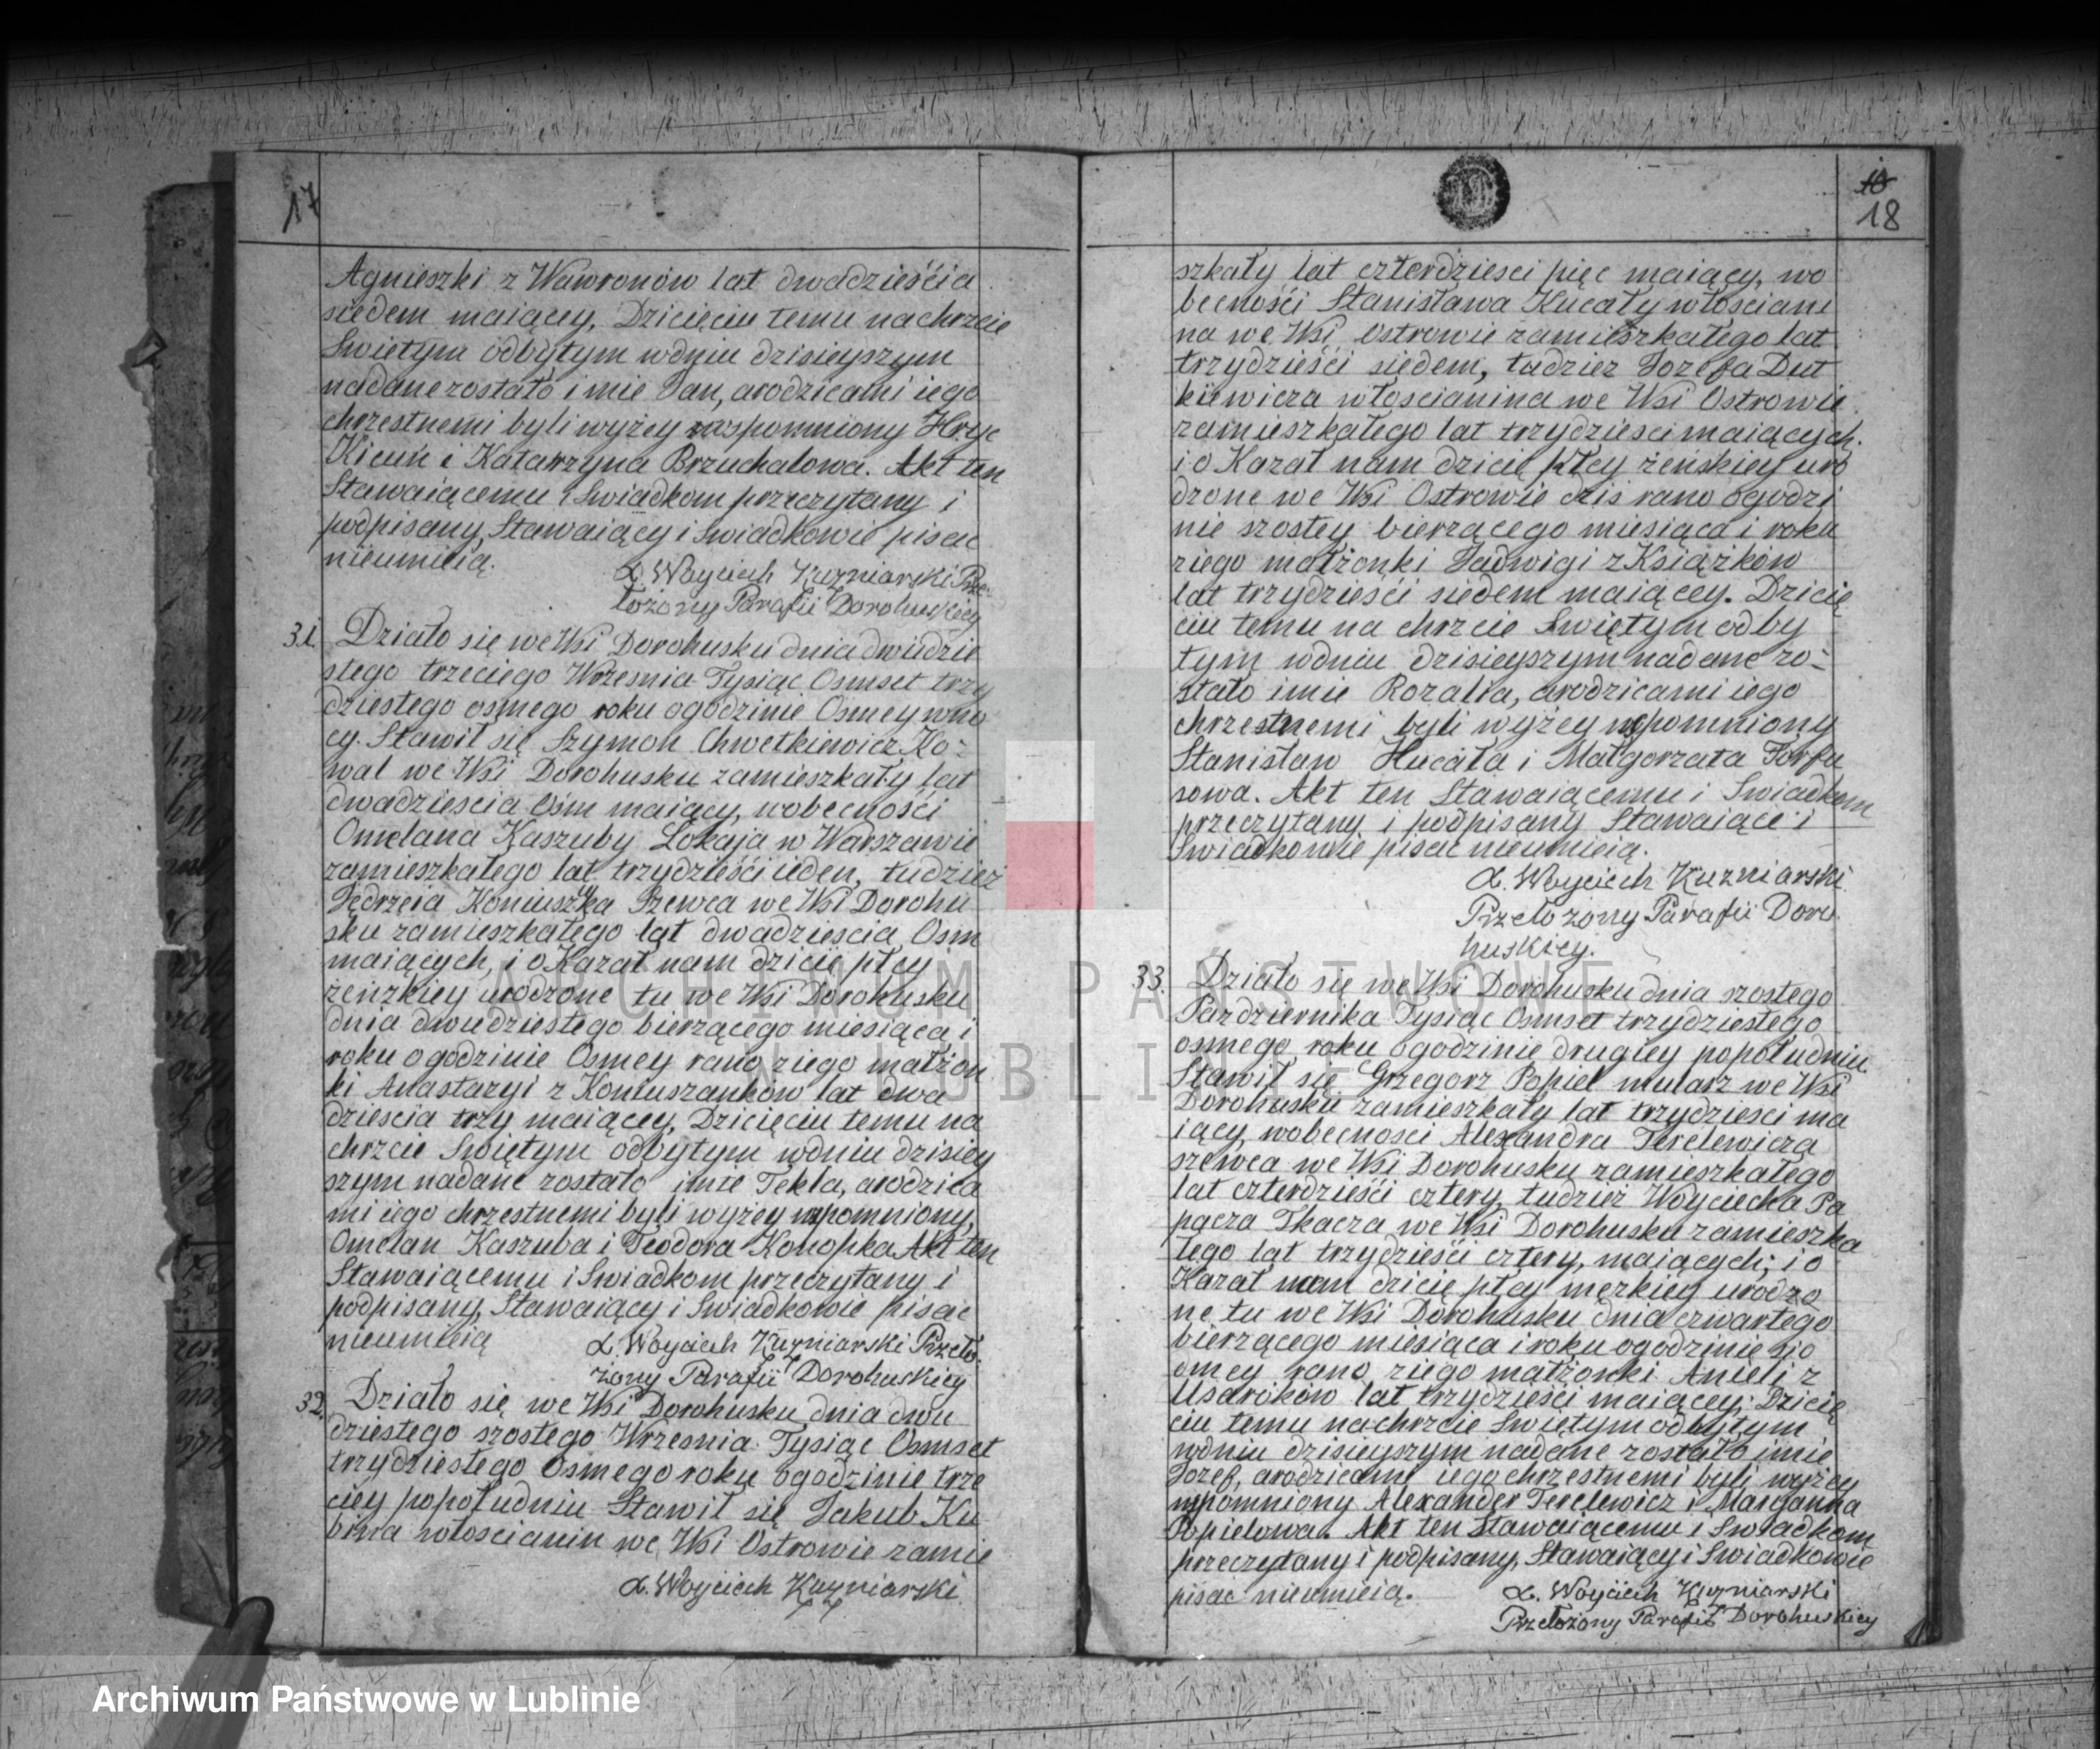 17
Agnieszki z Wawronów lat dwadzieścia
siedem maiącey, Dziecięciu temu na chrzcie
Swiętym odbytym wdniu dzisieyszym
nadane zostało imie Jan, a rodzicami iego
chrzestnemi byli wyżey wspomniony Hryc
Kicuń i Katarzyna Brzuchalowa. Akt ten
Stawaiącemu i Swiadkom przeczytany i
podpisany, Stawaiący i Swiadkowie pisać
nieumieią.
X. Woyciech Kuzniarski Prze-
łożony Parafii Dorohuskiey
31. Działo się we Wsi Dorohusku dnia dwudzie
stego trzeciego Wrzesnia Tysiąc Osmset trzy
dziestego osmego roku o godzinie Osmey wno
cy. Stawił się Szymon Chwetkiewicz Ko-
wal we Wsi Dorohusku zamieszkały lat
dwadziescia Ośm maiący, wobecności
Omelana Kaszuby Lokaja w Warszawie
zamieszkałego lat trzydzieści ieden, tudzież
Jędrzeia Koniuszka Szewca we Wsi Dorohu
sku zamieszkałego lat dwadziescia Ośm
maiących, i oKazał nam dziecie płcy
żeńzkiey urodzone tu we Wsi Dorohusku
dnia dwudziestego bierzącego miesiąca i
roku o godzinie Osmey rano z iego małżon
ki Anastazyi z Koniuszanków lat dwa
dziescia trzy maiącey, Dziecięciu temu na
chrzcie Swiętym odbytym wdniu dzisiey
szym nadane zostało imie Tekla, a rodzica
mi iego chrzestnemi byli wyżey wspomniony,
Omelan Kaszuba i Teodora Konopka Akt ten
Stawaiącemu i Swiadkom przeczytany i
podpisany, Stawaiący i Swiadkowie pisać
nieumieią
X. Woyciech Kuzniarski Przeło-
żony Parafii Dorohuskiey
32. Działo się we Wsi Dorohusku dnia dwu
dziestego szostego Wrzesnia Tysiąc Osmset
trzydziestego Osmego roku o godzinie trze
ciey popołudniu Stawił się Jakub Ku
bina włościanin we Wsi Ostrowie zamie
X. Woyciech Kuzniarski
18
szkały lat czterdziesci pięc maiący, wo
becności Stanisława Kucały włościani
na we Wsi Ostrowie zamieszkałego lat
trzydzieści siedem, tudziez Jozefa Dut
kiewicza włoscianina we Wsi Ostrowie
zamieszkałego lat trzydziesci maiących.
i o Kazał nam dziecie płcy żeńskiey uro
dzone we Wsi Ostrowie dzis rano o godzi
nie szostey bierzącego miesiąca i roku
z iego małżonki Jadwigi z Książków
lat trzydzieści siedem maiącey. Dziecię
ciu temu na chrzcie Swiętym odby
tym wdniu dzisieyszym nadane zo-
stało imie Rozalia, a rodzicami iego
chrzestnemi byli wyżey wspomniony
Stanisław Kucała i Małgorzata
sowa. Akt ten Stawaiącemu i Swiadkom
przeczytany i podpisany Stawaiące i
Swiadkowie pisać nieumieią.
X. Woyciech Kuzniarski
Przełożony Parafii Doro
huskiey.
33. Działo się we Wsi Dorohusku dnia szostego
Pazdziernika Tysiąc Osmset trzydziestego
osmego roku o godzinie drugiey popołudniu
Stawił się Grzegorz Popiel mularz we Wsi
Dorohusku zamieszkały lat trzydziesci ma
iący, wobecnosci Alexandra Terelewicza
szewca we Wsi Dorohusku zamieszkałego
lat czterdzieści cztery, tudzież Woyciecha Pa
pacza Tkacza we Wsi Dorohusku zamieszka
łego lat trzydzieści cztery, maiących; i o
Kazał nam dziecię płcy męzkiey urodzo
ne tu we Wsi Dorohusku dnia czwartego
bierzącego miesiąca i roku o godzinie sio
dmey rano z iego małżonki Anieli z
lat trzydzieści maiącey. Dziecię
ciu temu na chrzcie Swiętym odbytym
wdniu dzisieyszym nadane zostało imie
Jozef, a rodzicami iego chrzestnemi byli wyżey
wspomniony Alexander Terelewicz i Maryanna
Popielowa. Akt ten Stawaiącemu i Swiadkom
przeczytany i podpisany, Stawaiący i Swiadkowie
pisać nieumieią.
X. Woyciech Kuzniarski
Przełożony Parafii Dorohuskiey
ARCHIWUM PAŃSTWOWE
W LUBLINIE
Archiwum Państwowe w Lublinie